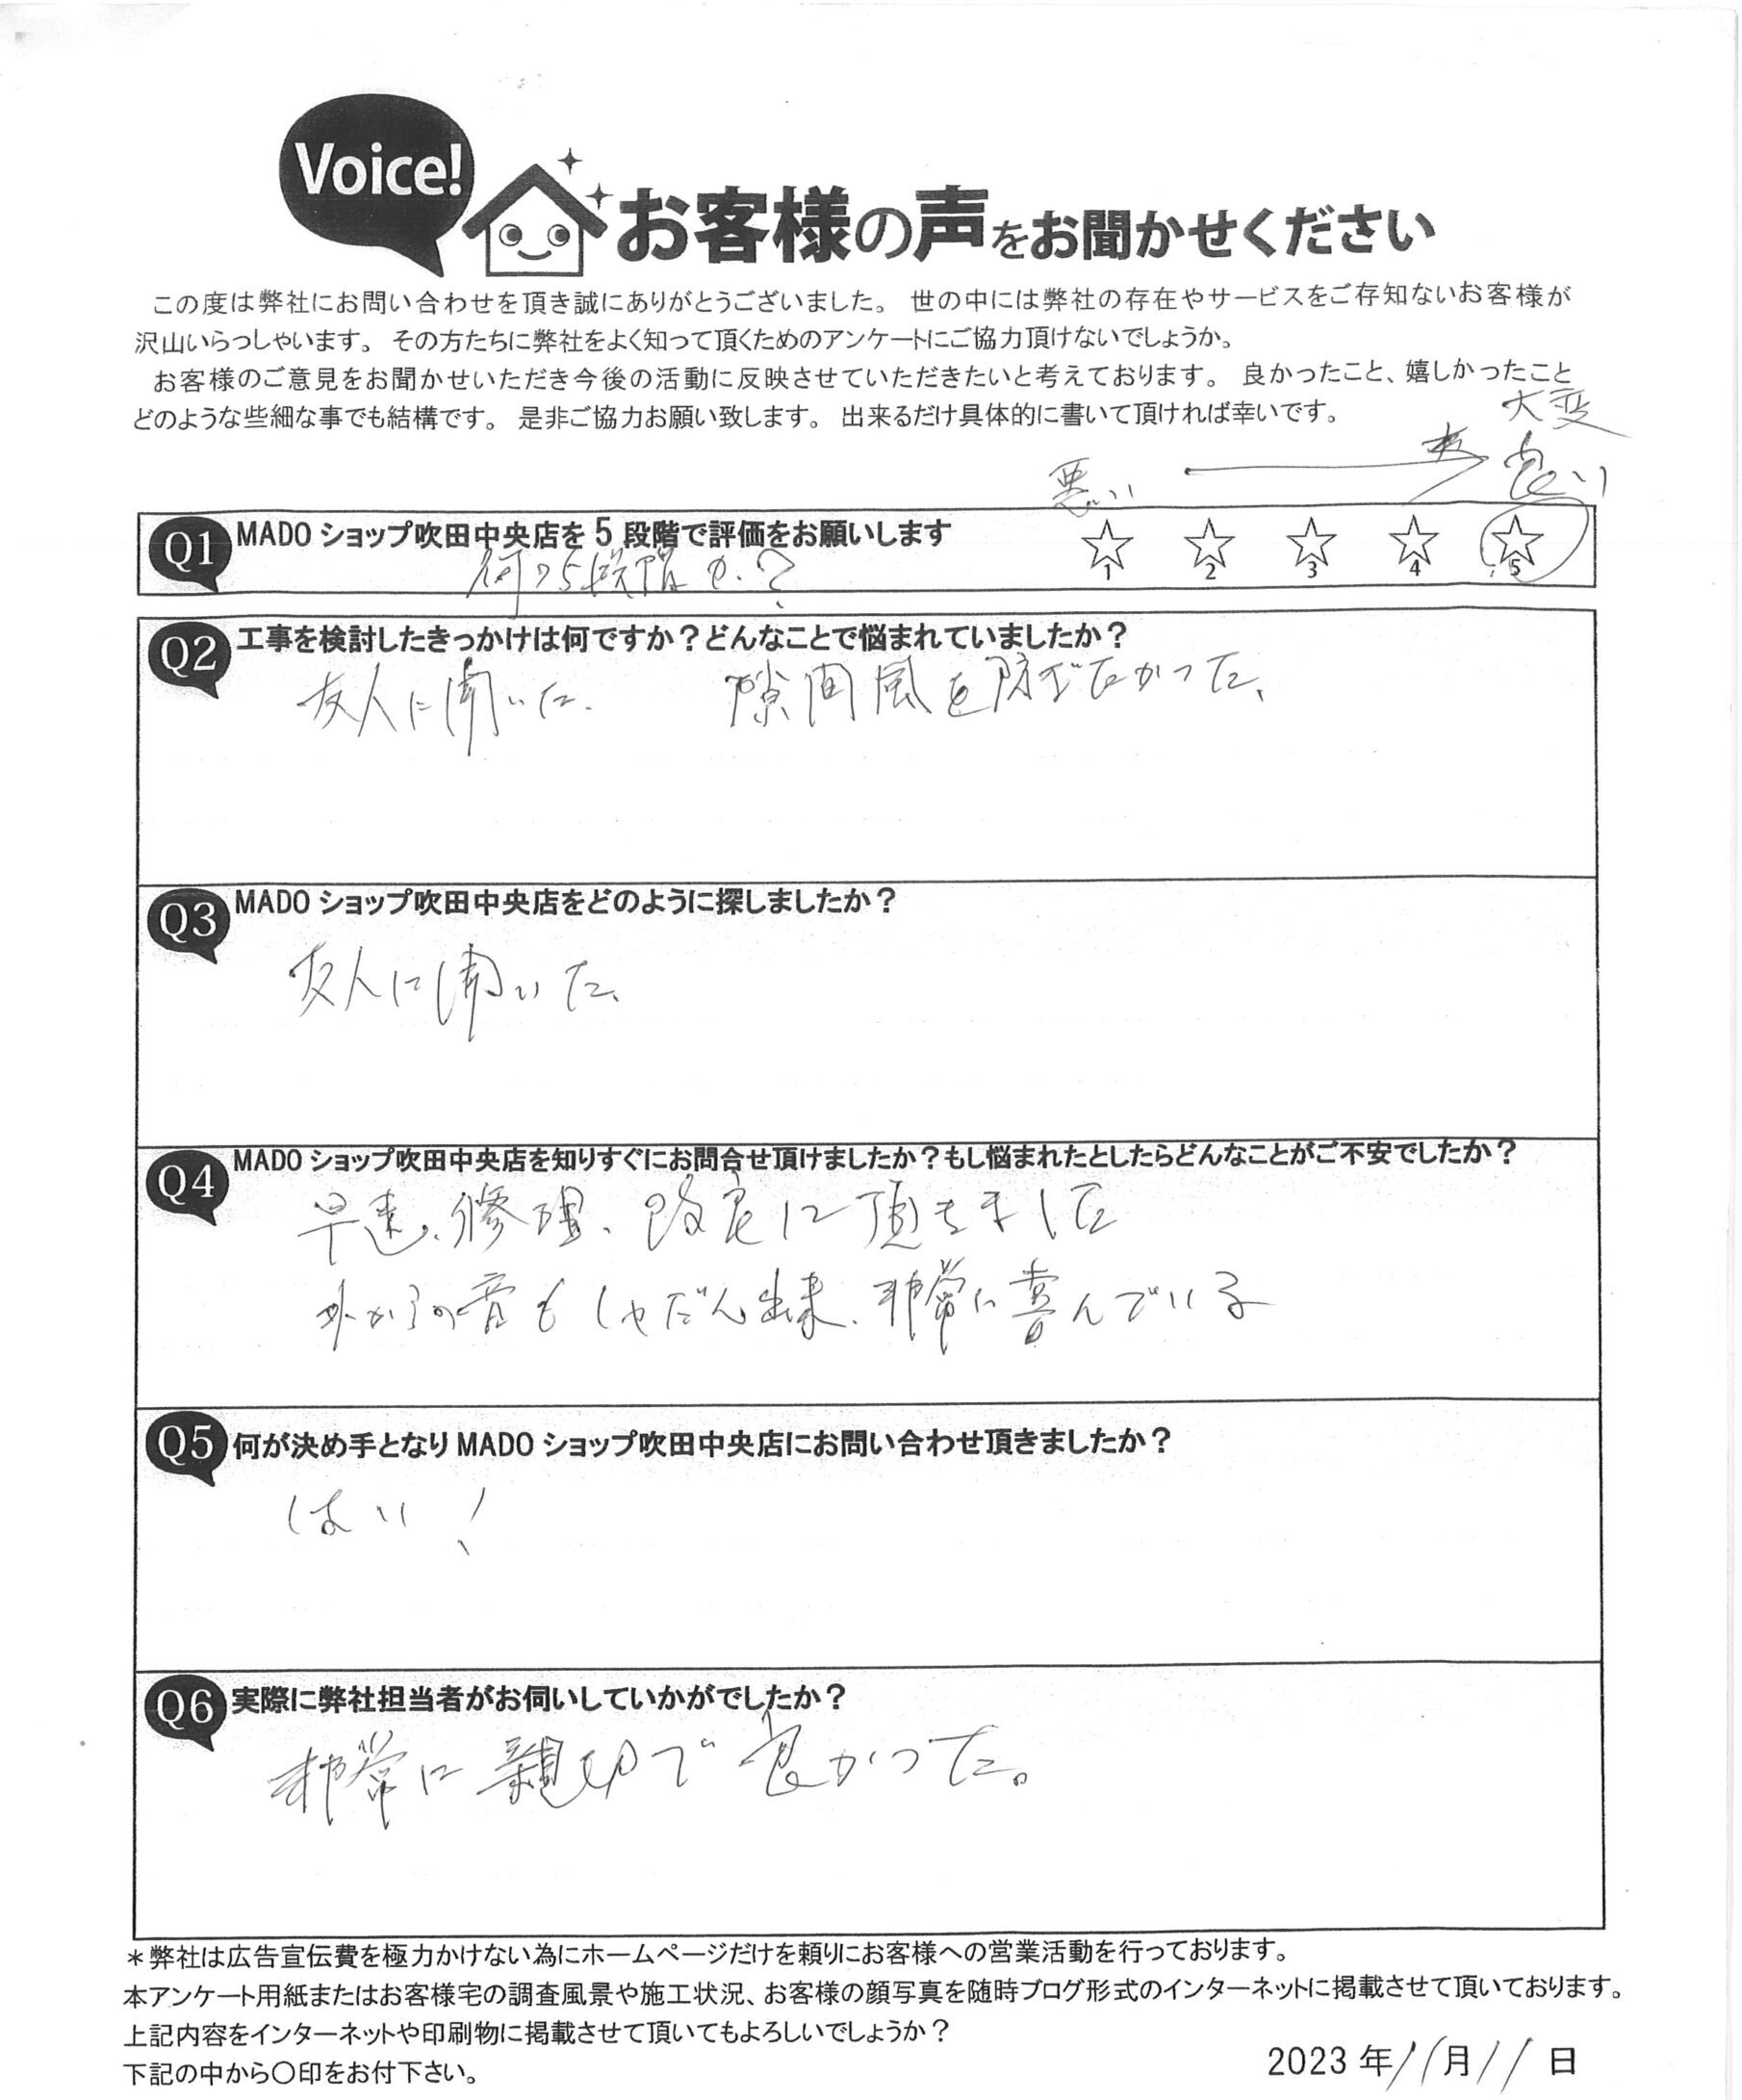 Voice!
お客様の声をお聞かせください
この度は弊社にお問い合わせを頂き誠にありがとうございました。 世の中には弊社の存在やサービスをご存知ないお客様が
沢山いらっしゃいます。 その方たちに弊社をよく知って頂くためのアンケートにご協力頂けないでしょうか。
お客様のご意見をお聞かせいただき今後の活動に反映させていただきたいと考えております。 良かったこと、嬉しかったこと
どのような些細な事でも結構です。 是非ご協力お願い致します。 出来るだけ具体的に書いて頂ければ幸いです。
大変
悪い 良い
Q1 MADO ショップ吹田中央店を 5 段階で評価をお願いします
1 2 3 4 5
何の5段階か?
Q2 工事を検討したきっかけは何ですか？どんなことで悩まれていましたか？
友人に聞いた. 隙間風を防ぎたかった、
Q3 MADO ショップ吹田中央店をどのように探しましたか？
友人に聞いた、
Q4 MADO ショップ吹田中央店を知りすぐにお問合せ頂けましたか？もし悩まれたとしたらどんなことがご不安でしたか？
早速、修理、に頂きました
外からの音もしゃだん出来、非常に喜んでいる
Q5 何が決め手となり MADO ショップ吹田中央店にお問い合わせ頂きましたか？
はい！
Q6 実際に弊社担当者がお伺いしていかがでしたか？
非常に親切で良かった。
＊弊社は広告宣伝費を極力かけない為にホームページだけを頼りにお客様への営業活動を行っております。
本アンケート用紙またはお客様宅の調査風景や施工状況、お客様の顔写真を随時ブログ形式のインターネットに掲載させて頂いております。
上記内容をインターネットや印刷物に掲載させて頂いてもよろしいでしょうか？
下記の中から〇印をお付下さい。
2023 年 11 月 11 日